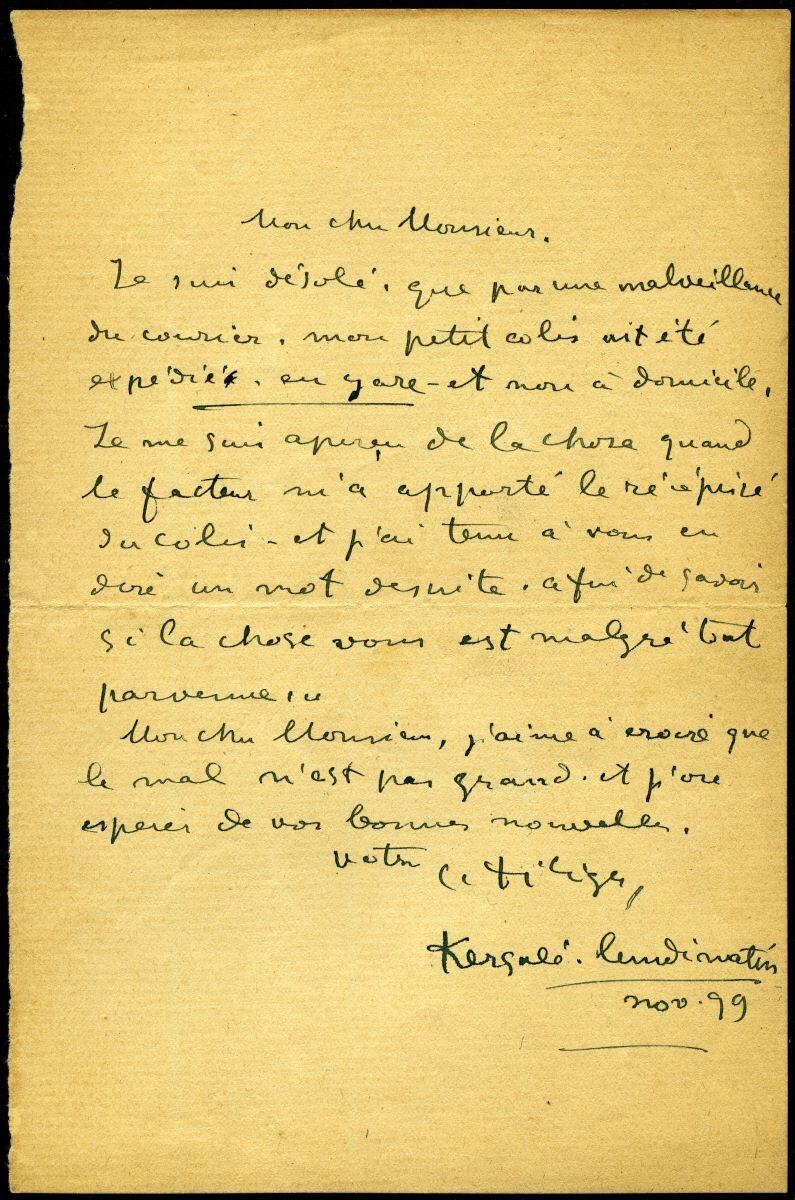 Mon cher Monsieur.
Je suis désolé, que par une malveillance
du courier, mon petit colis ait été
expédié, en gare - et non à domicile,
Je me suis aperçu de la chose quand
le facteur m'a apporté le récépissé
du colis - et j'ai tenu à vous en
dire un mot desuite, afin de savoir
si la chose vous est malgré tout
parvenue,
Mon cher Monsieur, j'aime à croire que
le mal n'est pas grand. et j'ose
espérer de vos bonnes nouvelles.
votre
Ch Filiger,
Kergalé. lundi matin
nov. 99